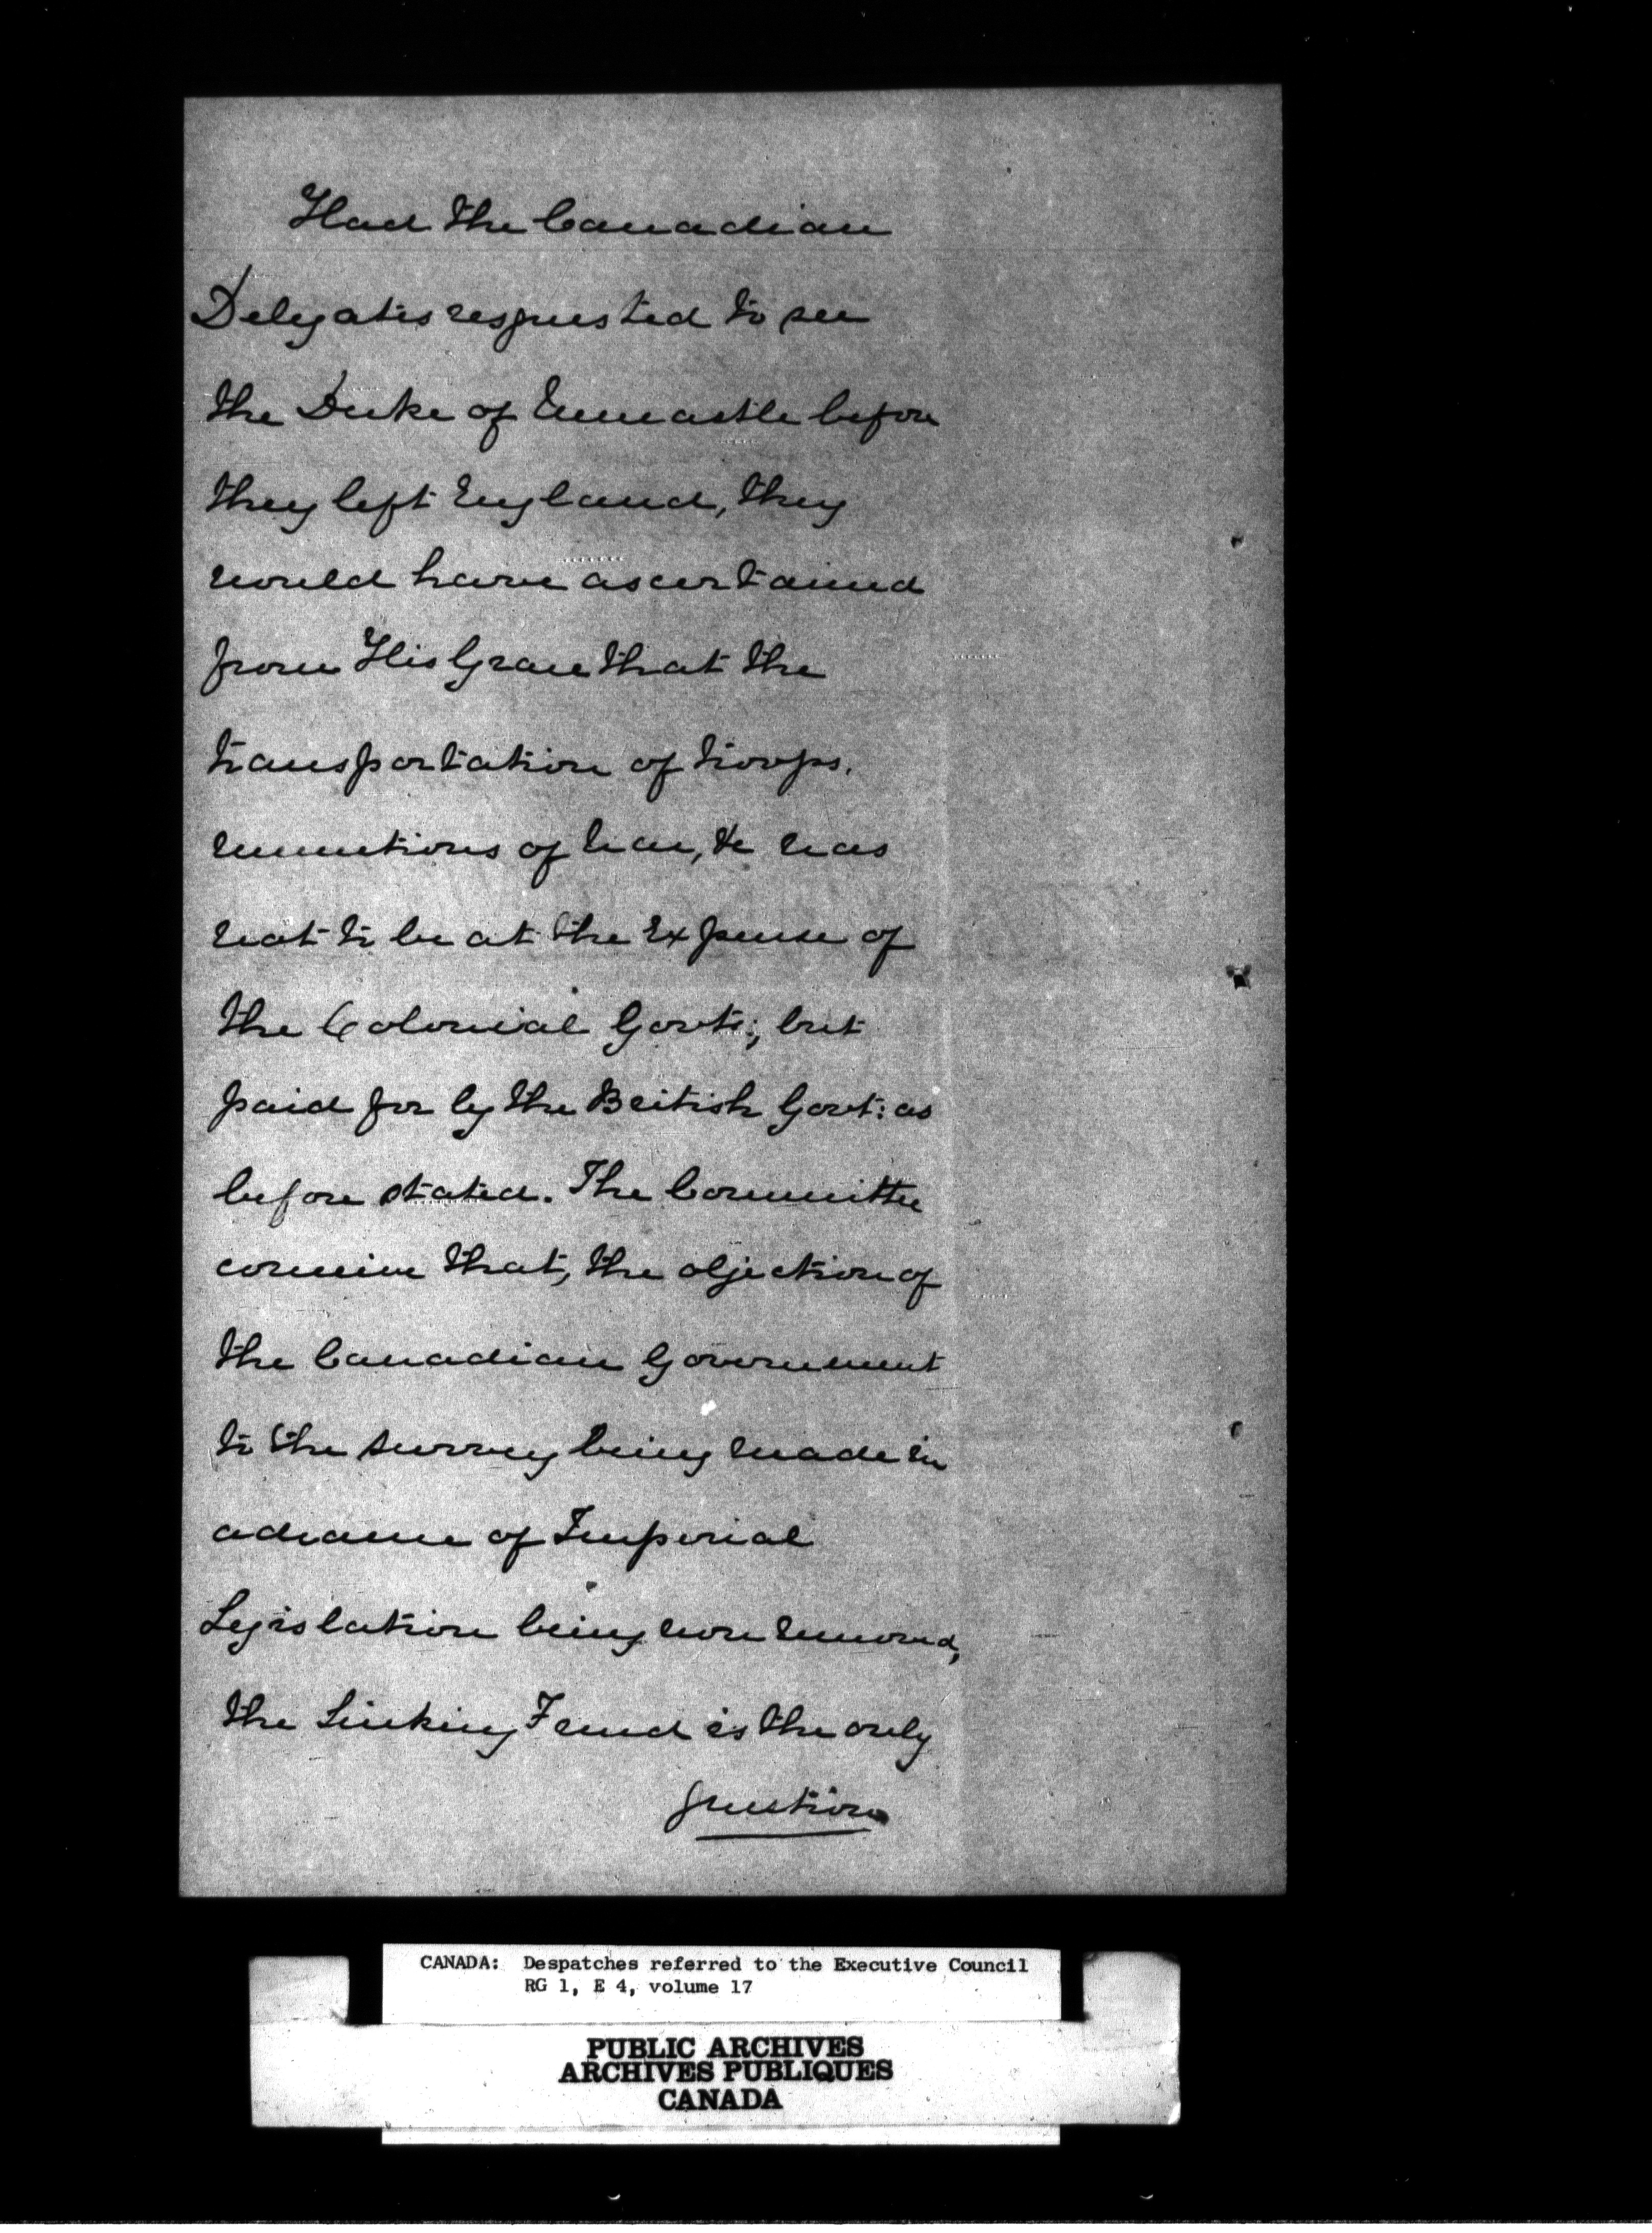 Had the Canadian
Delegates requested to see
the Duke of Newcastle before
they left England, they
would have ascertained
from His Grace that the
transportation of troops,
munitions of War, &c was
not to be at the expense of
the Colonial Govts; but
paid for by the British Govt: as
before stated. The Committee
conceive that, the objection of
the Canadian Government
to the survey being made in
advance of Imperial
Legislation being now removed,
the Sinking Fund is the only
question
CANADA: Despatches referred to the Executive Council
RG 1, E 4, volume 17
PUBLIC ARCHIVES
ARCHIVES PUBLIQUES
CANADA